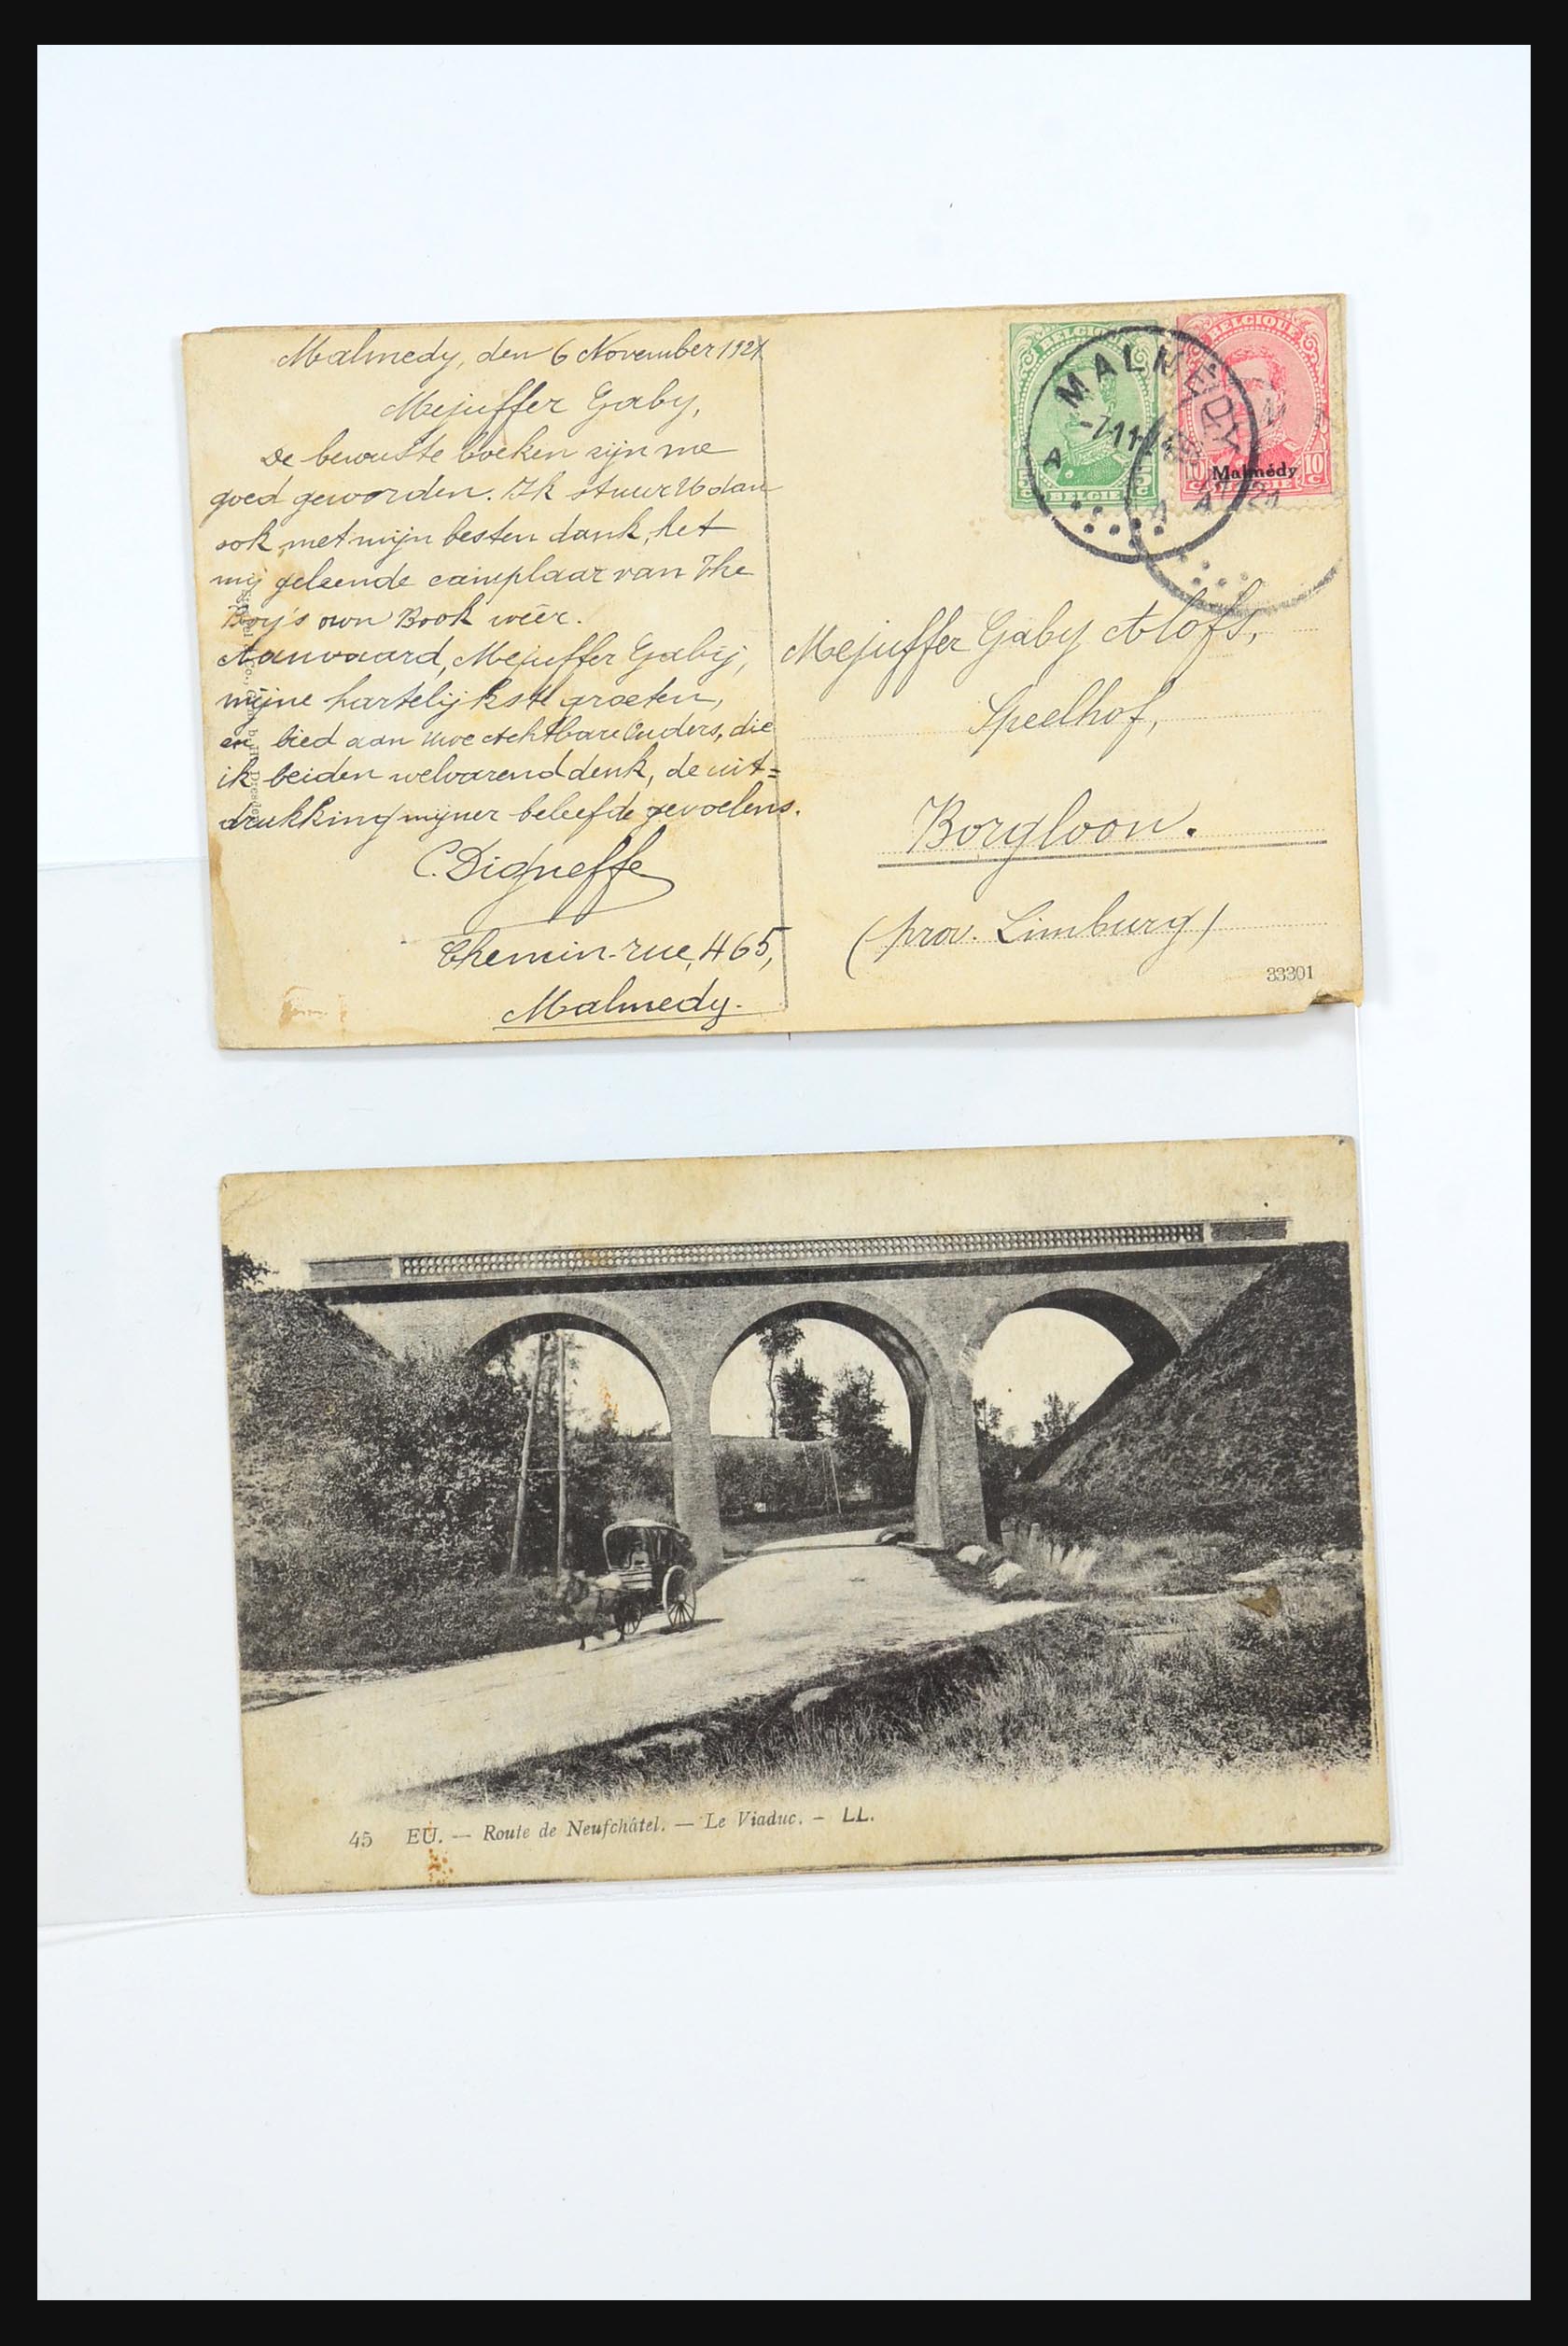 Malmedy, den 6 November 1921
Mejuffer Gaby,
De bewuste boeken zijn me
goed geworden. Ik stuur U dan
ook, met mijn besten dank, het
mij geleende exemplaar van The
Boy's own Book wêer.
Aanvaard, Mejuffer Gabij,
mijne hartelijkste groeten,
en bied aan Uwe Achtbare Ouders, die
ik beiden welvarend denk, de uit=
drukking mijner beleefde gevoelens.
C. Digneffe
Chemin-rue, 465,
Malmedy.
BELGIQUE
BELGIË
BELGIQUE
Malmédy
10 C
BELGIË
MALMEDY
-7.11
A
Mejuffer Gaby Alofs,
Speelhof,
Borgloon.
(prov. Limburg)
33301
Dresden
45 EU. — Route de Neufchâtel. — Le Viaduc. – LL.